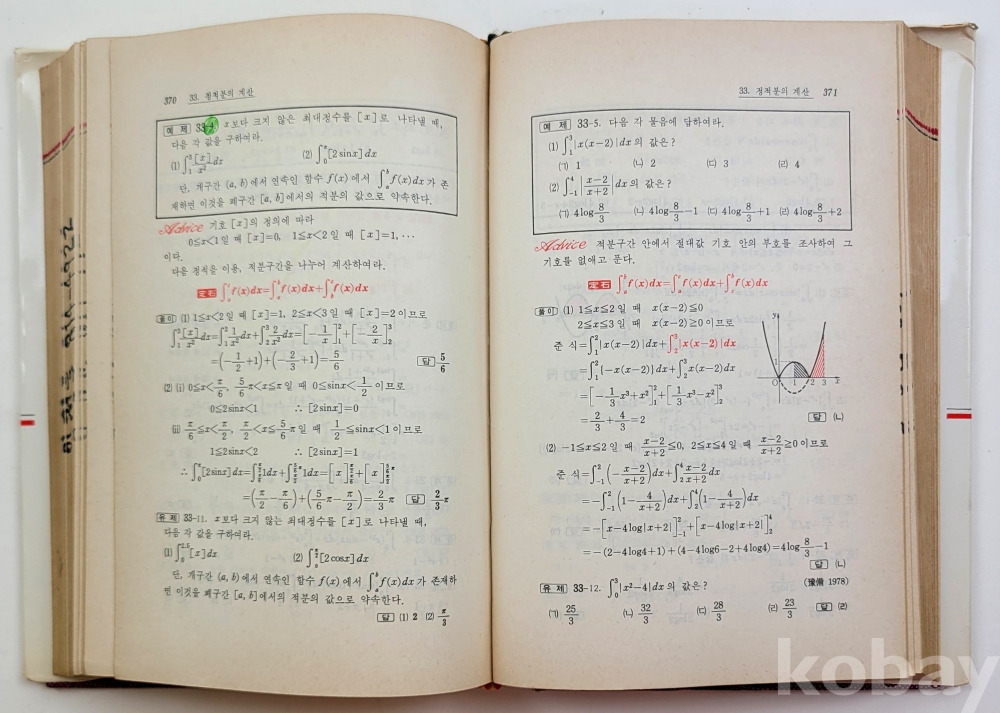 370 33. 정적분의 계산
예 제 33-4. x보다 크지 않은 최대정수를 [x]로 나타낼 때,
다음 각 값을 구하여라.
(1) ∫₁³ [x]/x² dx (2) ∫₀^π [2sinx]dx
단, 개구간 (a, b)에서 연속인 함수 f(x)에서 ∫ₐᵇ f(x)dx가 존
재하면 이것을 폐구간 [a, b]에서의 적분의 값으로 약속한다.
Advice 기호 [x]의 정의에 따라
0≤x<1일 때 [x]=0, 1≤x<2일 때 [x]=1, ⋯
이다.
다음 정석을 이용, 적분구간을 나누어 계산하여라.
定石 ∫ₐᵇf(x)dx=∫ₐᶜf(x)dx+∫꜀ᵇf(x)dx
풀이 (1) 1≤x<2일 때 [x]=1, 2≤x<3일 때 [x]=2이므로
∫₁³ [x]/x² dx=∫₁² 1/x² dx+∫₂³ 2/x² dx=[-1/x]₁²+[-2/x]₂³
=(-1/2+1)+(-2/3+1)=5/6 답 5/6
(2) (i) 0≤x<π/6, 5/6π<x≤π일 때 0≤sinx<1/2 이므로
0≤2sinx<1 ∴ [2sinx]=0
(ii) π/6≤x<π/2, π/2<x≤5/6π일 때 1/2≤sinx<1이므로
1≤2sinx<2 ∴ [2sinx]=1
∴ ∫₀^π[2sinx]dx=∫_{π/6}^{π/2}1dx+∫_{π/2}^{5/6π}1dx=[x]_{π/6}^{π/2}+[x]_{π/2}^{5/6π}
=(π/2-π/6)+(5/6π-π/2)=2/3π 답 2/3π
유 제 33-11. x보다 크지 않는 최대정수를 [x]로 나타낼 때,
다음 각 값을 구하여라.
(1) ∫₀^{2.5}[x]dx (2) ∫₀^{π/2}[2cosx]dx
단, 개구간 (a, b)에서 연속인 함수 f(x)에서 ∫ₐᵇf(x)dx가 존재하
면 이것을 폐구간 [a, b]에서의 적분의 값으로 약속한다.
답 (1) 2 (2) π/3
33. 정적분의 계산 371
예 제 33-5. 다음 각 물음에 답하여라.
(1) ∫₁³|x(x-2)|dx의 값은?
(ㄱ) 1 (ㄴ) 2 (ㄷ) 3 (ㄹ) 4
(2) ∫₋₁⁴|(x-2)/(x+2)|dx의 값은?
(ㄱ) 4log 8/3 (ㄴ) 4log 8/3 -1 (ㄷ) 4log 8/3 +1 (ㄹ) 4log 8/3 +2
Advice 적분구간 안에서 절대값 기호 안의 부호를 조사하여 그
기호를 없애고 푼다.
定石 ∫ₐᵇf(x)dx=∫ₐᶜf(x)dx+∫꜀ᵇf(x)dx
풀이 (1) 1≤x≤2일 때 x(x-2)≤0
2≤x≤3일 때 x(x-2)≥0이므로
준 식=∫₁²|x(x-2)|dx+∫₂³|x(x-2)|dx
=∫₁²{-x(x-2)}dx+∫₂³x(x-2)dx
=[-1/3x³+x²]₁²+[1/3x³-x²]₂³
=2/3+4/3=2
답 (ㄴ)
y
1
O 1 2 3 x
(2) -1≤x≤2일 때 (x-2)/(x+2)≤0, 2≤x≤4일 때 (x-2)/(x+2)≥0이므로
준 식=∫₋₁²(-(x-2)/(x+2))dx+∫₂⁴(x-2)/(x+2)dx
=-∫₋₁²(1-4/(x+2))dx+∫₂⁴(1-4/(x+2))dx
=-[x-4log|x+2|]₋₁²+[x-4log|x+2|]₂⁴
=-(2-4log4+1)+(4-4log6-2+4log4)=4log 8/3 -1
답 (ㄴ)
유 제 33-12. ∫₀³|x²-4|dx의 값은? (豫備 1978)
(ㄱ) 25/3 (ㄴ) 32/3 (ㄷ) 28/3 (ㄹ) 23/3 답 (ㄹ)
kobay